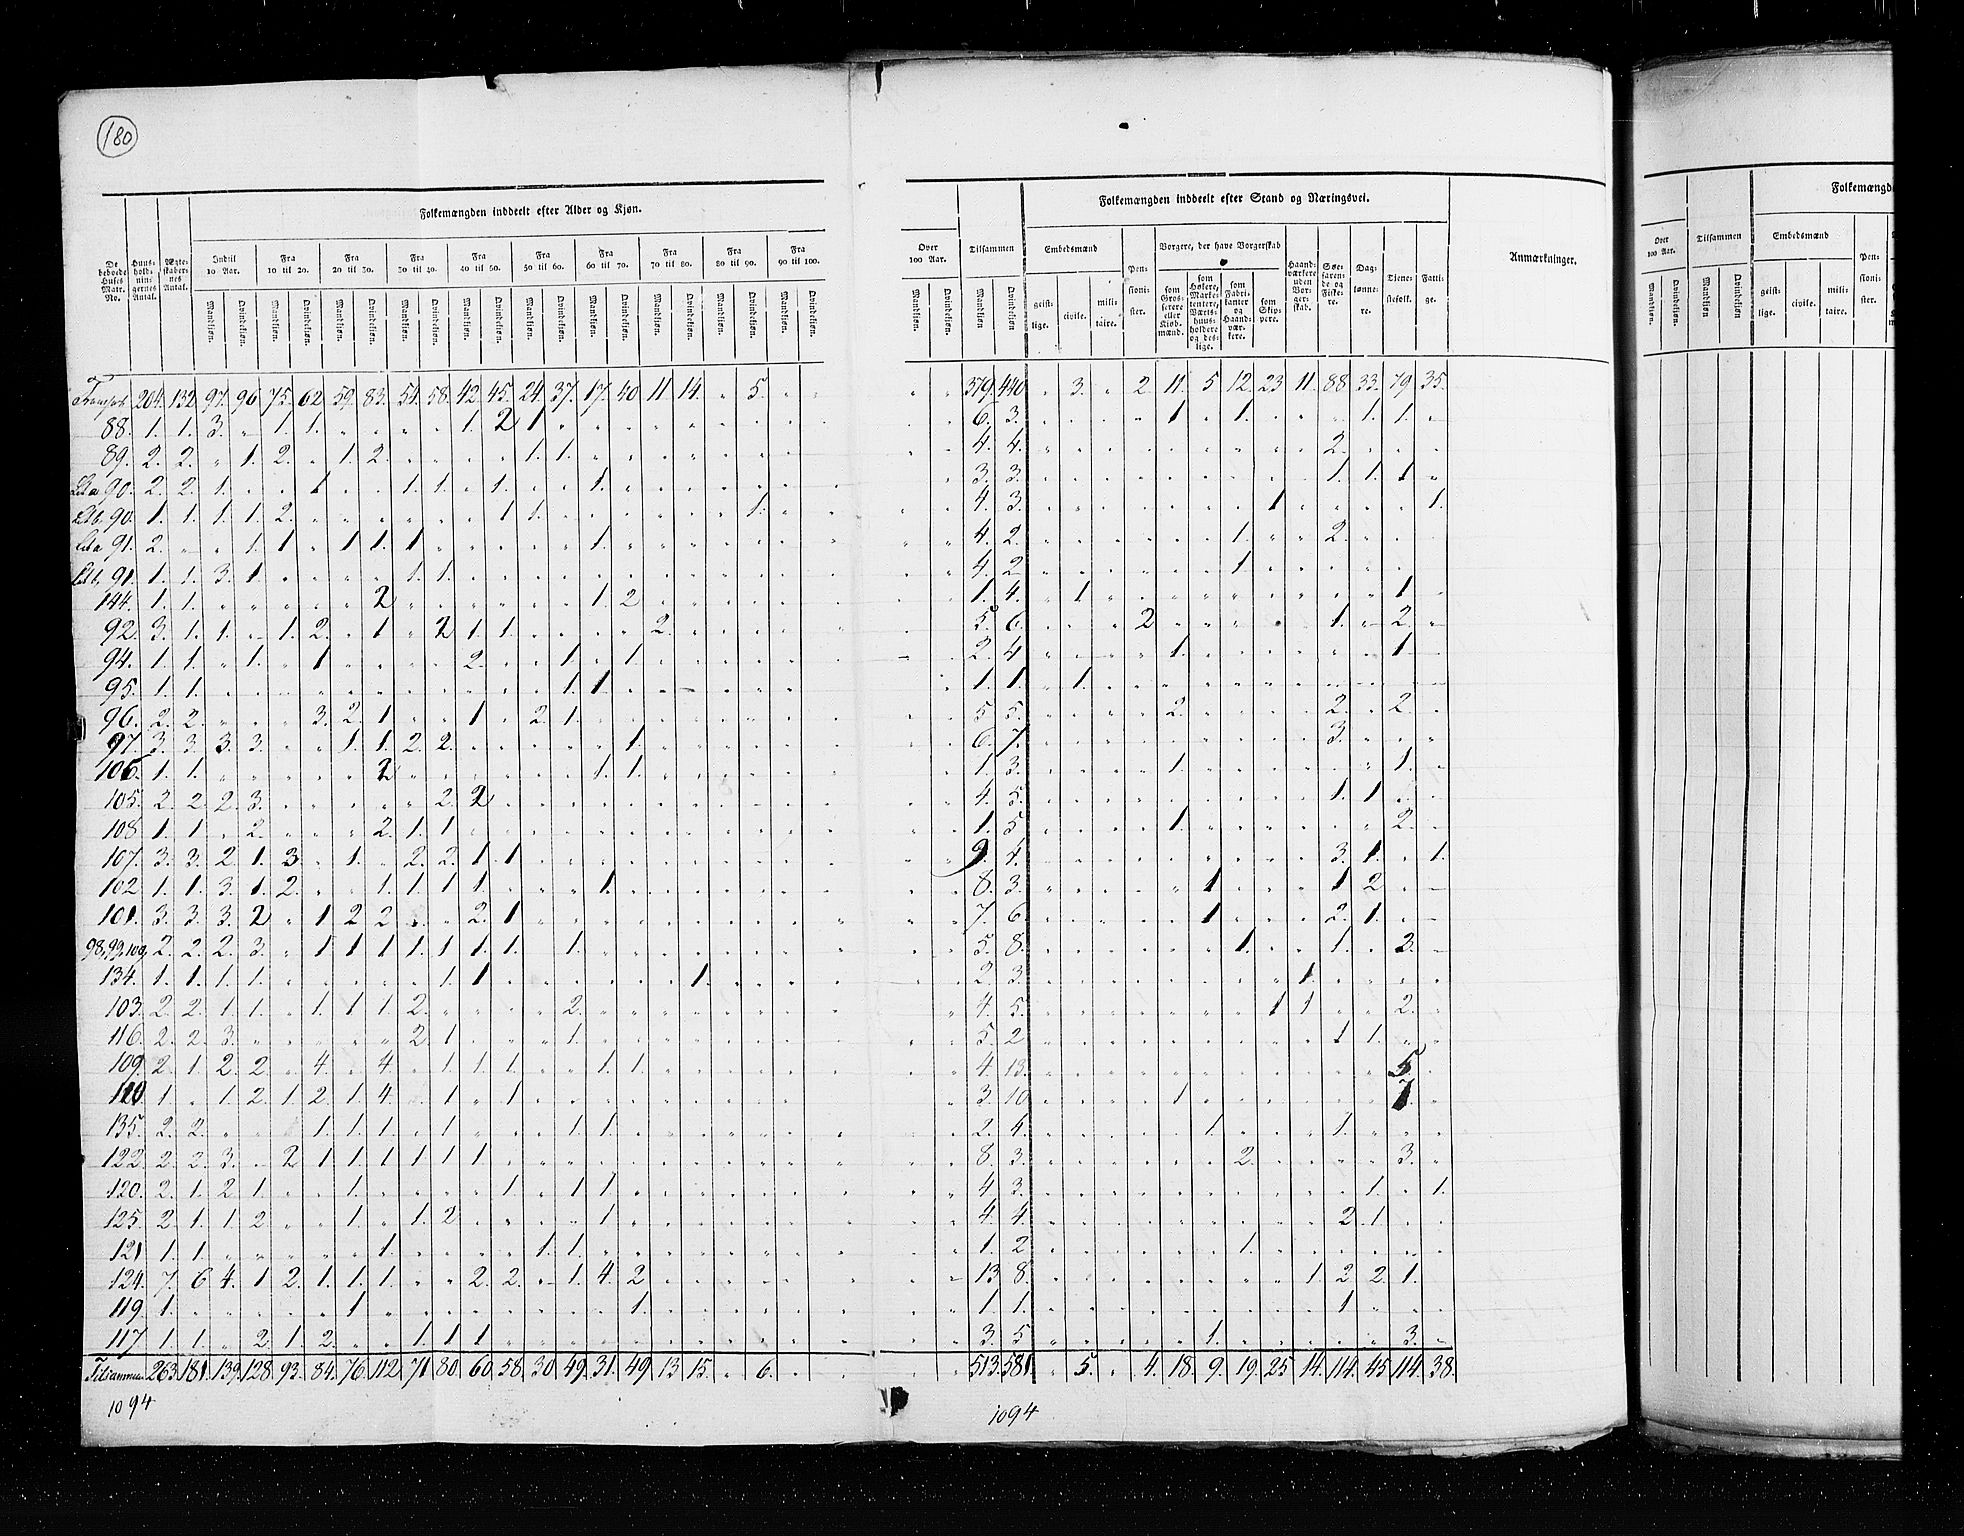 180
Folkemængden inddeelt efter Alder og Kjøn.
De beboede Huses Matr. No. Huus-hold-nin-gernes Antal. Ægte-skaber-nes Antal. Indtil 10 Aar. Fra 10 til 20. Fra 20 til 30. Fra 30 til 40. Fra 40 til 50. Fra 50 til 60. Fra 60 til 70. Fra 70 til 80. Fra 80 til 90. Fra 90 til 100.
Mandkjøn. Qvindekjøn. Mandkjøn. Qvindekjøn. Mandkjøn. Qvindekjøn. Mandkjøn. Qvindekjøn. Mandkjøn. Qvindekjøn. Mandkjøn. Qvindekjøn. Mandkjøn. Qvindekjøn. Mandkjøn. Qvindekjøn. Mandkjøn. Qvindekjøn. Mandkjøn. Qvindekjøn.
Over 100 Aar. Tilsammen
Mandkjøn. Qvindekjøn. Mandkjøn. Qvindekjøn.
Folkemængden inddeelt efter Stand og Næringsvei.
Embedsmænd geist-lige. civile. mili-taire. Pen-sioni-ster.
Borgere, der have Borgerskab
som Gros-serere eller Kjøb-mænd. som Høkere, Marke-tentere, Værts-huus-holdere og des-lige. som Fabri-kanter og Haand-vær-kere. som Skip-pere.
Haand-værkere uden Bor-ger-skab. Søe-faren-de og Fiske-re. Dag-lønne-re. Tjene-stefolk. Fatti-ge.
Anmærkninger.
Transport 204. 132. 97. 96. 75. 62. 59. 83. 54. 58. 42. 45. 24. 37. 17. 40. 11. 14. " 5. " " " " 379. 440. " 3. " 2. 11. 5. 12. 23. 11. 88. 33. 79. 35.
88. 1. 1. 3. " 1. 1. " " " " 1. 2 1 " 6. 3. 1 " 1. 1. 1.
89. 2. 2. " 1. 2. " 1. 2. " " " " 1. 1. 4. 4. 2.
Lit a 90. 2. 2. 1. " " 1 " " 1. 1. " 1. " " 1. 3. 3. 1. 1. 1
Lit b. 90. 1. 1. 1. 1. 2. " " " " " " 1 1. 1. 4. 3. 1 1.
Lit a 91. 2. " " 1. 1 " 1 1. 1 " " " " " 1. 4. 2. 1. 2.
Lit b. 91. 1. 1. 3. 1 " " " " 1. 1. 4. 2 1
144. 1. 1. " " " " " 2 " " " " " " 1. 2 1. 4. 1 1
92. 3. 1. 1. " 1. 2. " 1 " 2 1. 1. " " " " 2. 5. 6. 2 1. 2.
94. 1. 1. " 1. " 1 " " " " 2. " " 1. " 1. 2. 4 1. 1
95. 1. 1. " " " " " " " " " " " 1. 1. 1. 1. 1.
96. 2. 2. " " " 3. 2. 1 " " 1 " 2. 1. 5 5. 2. 2. 2.
97. 3. 3. 3. 3. " " 1. 1. 2. 2. " " " " " 1. 6. 7. 3.
106. 1. 1. " " " " " 2 " " " " " " 1. 1. 1. 3. 1. 1.
105. 2. 2. 2. 3. " " " " " 2. 2 4. 5. 1. 1
108 1. 1 " 2. " " " 2. 1. 1 1. 5 1. 2.
107. 3. 3. 2. 1. 3 " 1. " 2. 2. 1. 1 9. 4. 3. 1. 1.
102. 1. 1. 3. 1. 2. " " 1. 1. 1 1. " " " 1. 8. 3. 1 1 2
101. 3. 3. 3. 2 " 1 2 2. " " 2. 1 7. 6. 1 2. 1.
98, 99, 100, 2. 2. 2. 3. " 1 1 1 1. 1. 1. 1. " 1. 5. 8. 1. 1. 2.
134. 1. 1. 1. 1. " " " " " 1. 1 " " " " " " 1. 2. 3. 1.
103. 2. 2. 1 1. " 1. 1 1. 2. " " " " 2. 4. 5. 1 1. 2.
116. 2. 2. 3. " " " " " 2 1 " " " 1. 5. 2. 1 1.
109. 2. 1. 2. 2. " 4. " 4. " 1. 1. 1. " " 1. 1. 4. 13. 5
110. 1. " 1. 2. 1 2. 1. 4. " 1. " 1 3. 10. 1 7.
135. 2. 2. " " " 1. 1. 1. " 1. " " " 1. 1. 2. 4. 1. 1.
122. 2. 2. 3. " 2 1 1. 1 1. 1. 1. 8. 3. 2. 3.
120. 2. 1. 2 1. " " 1. " " " " 1. " 1 1. 4. 3. 1. 1.
125. 2. 1. 1 2. " " 1. " 1. 2 " " " " 1. 4. 4. 2 1.
121 1. 1. " " " " " 1. " " " " 1. 1. 1. 2 1.
124. 7. 6 4. 1 2. 1. 1. 1. " " 2. 2. " 1. 4. 2 13. 8. 1. 2 2. 1.
119. 1. " " " " " 1. " " " " " " " " 1. 1. 1. 1
117. 1. 1. " 2. 1. 2. " " 1. 1. 1 3. 5 1. 3.
Tilsammen 263. 181. 139. 128. 93. 84. 76. 112. 71. 80. 60. 58. 30. 49. 31. 49. 13. 15. " 6. " " " " 513. 581. " 5. " 4. 18. 9. 19. 25. 14. 114. 45. 114. 38.
1094 1094
Over 100 Aar. Tilsammen
Embedsmænd
geist-lige. civile. mili-taire. Pen-sioni-ster.
Mandkjøn. Qvindekjøn. Mandkjøn. Qvindekjøn.